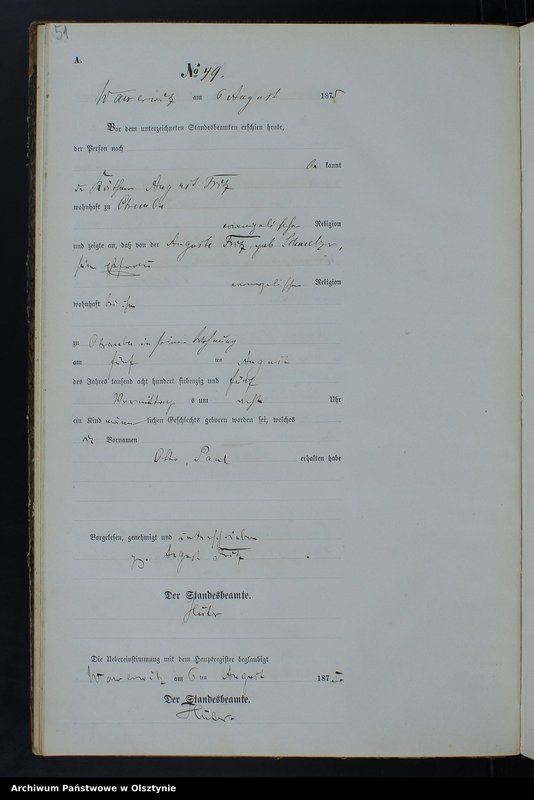 51
A.
No 49.
Wawerwitz am 6 August 1875
Vor dem unterzeichneten Standesbeamten erschien heute,
der Person nach
be kannt
August Fritz
wohnhaft zu
evangelischer Religion
und zeigte an, daß von der Auguste Fritz geb.
seine Ehefrau
evangelischer Religion
wohnhaft bei ihm
zu in seiner Wohnung
am fünf ten August
des Jahres tausend acht hundert siebenzig und fünf
Vormittag s um acht Uhr
ein Kind männ lichen Geschlechts geboren worden sei, welches
die Vornamen
Otto, Paul erhalten habe
Vorgelesen, genehmigt und unterschrieben
gz. August Fritz
Der Standesbeamte.
Die Uebereinstimmung mit dem Hauptregister beglaubigt
Wawerwitz am 6 ten August 1875.
Der Standesbeamte.
Archiwum Państwowe w Olsztynie